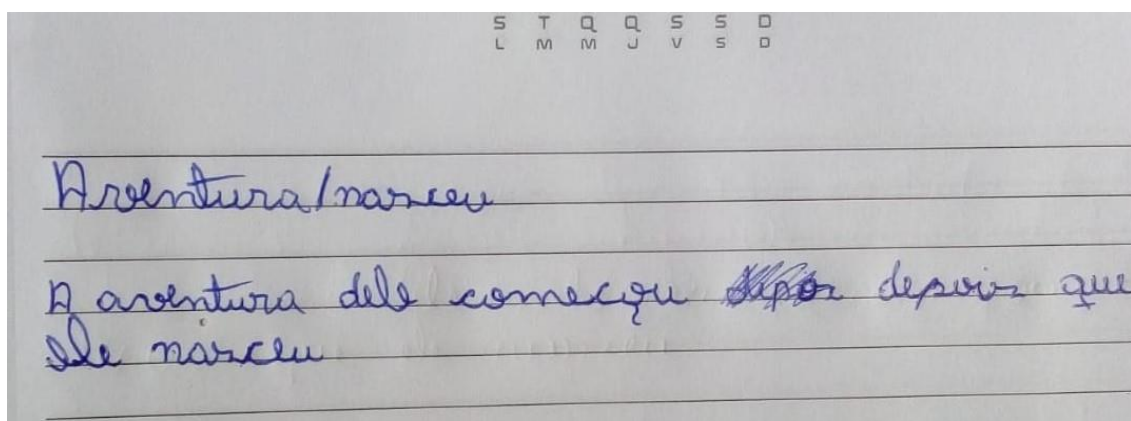 S T Q Q S S D
L M M J V S D
Aventura/nasceu
A aventura dele começou depois que
ele nasceu